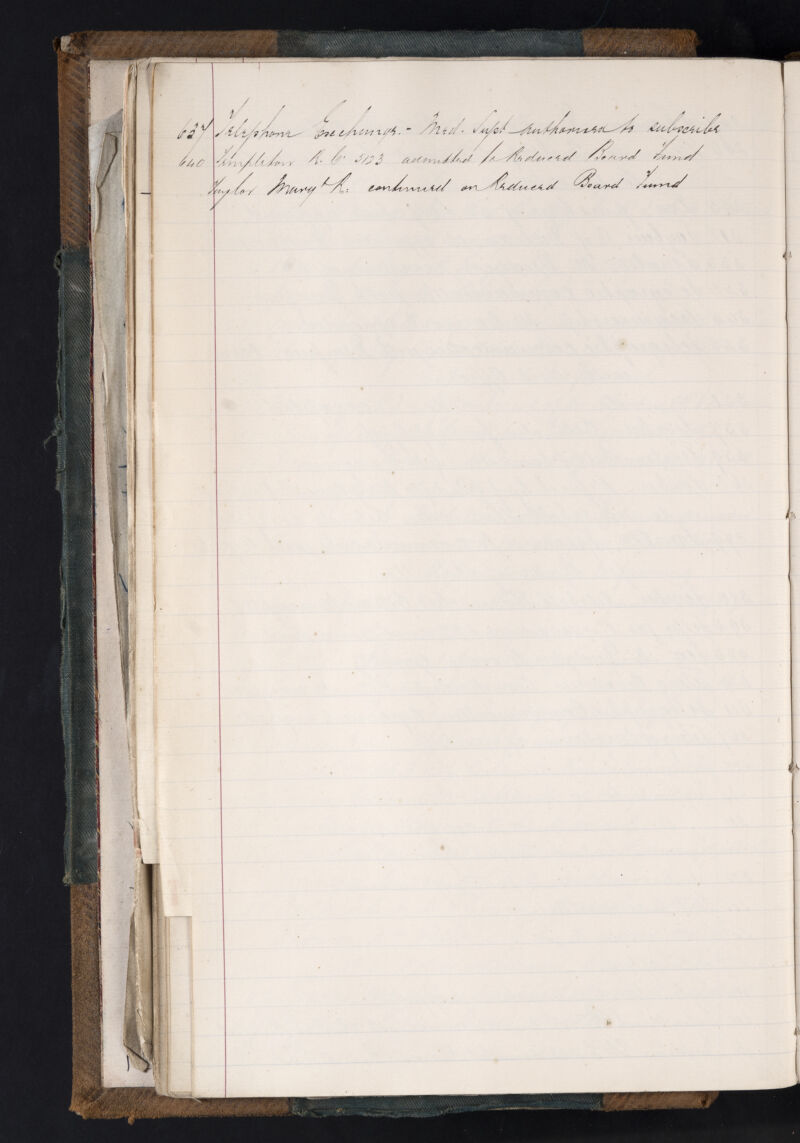 627 Telephone Exchange. - Med. Supt authorised to subscribe
640 Templeton R. C. 5123 admitted to Reduced Board Fund
— Taylor Margt R. continued on Reduced Board Fund